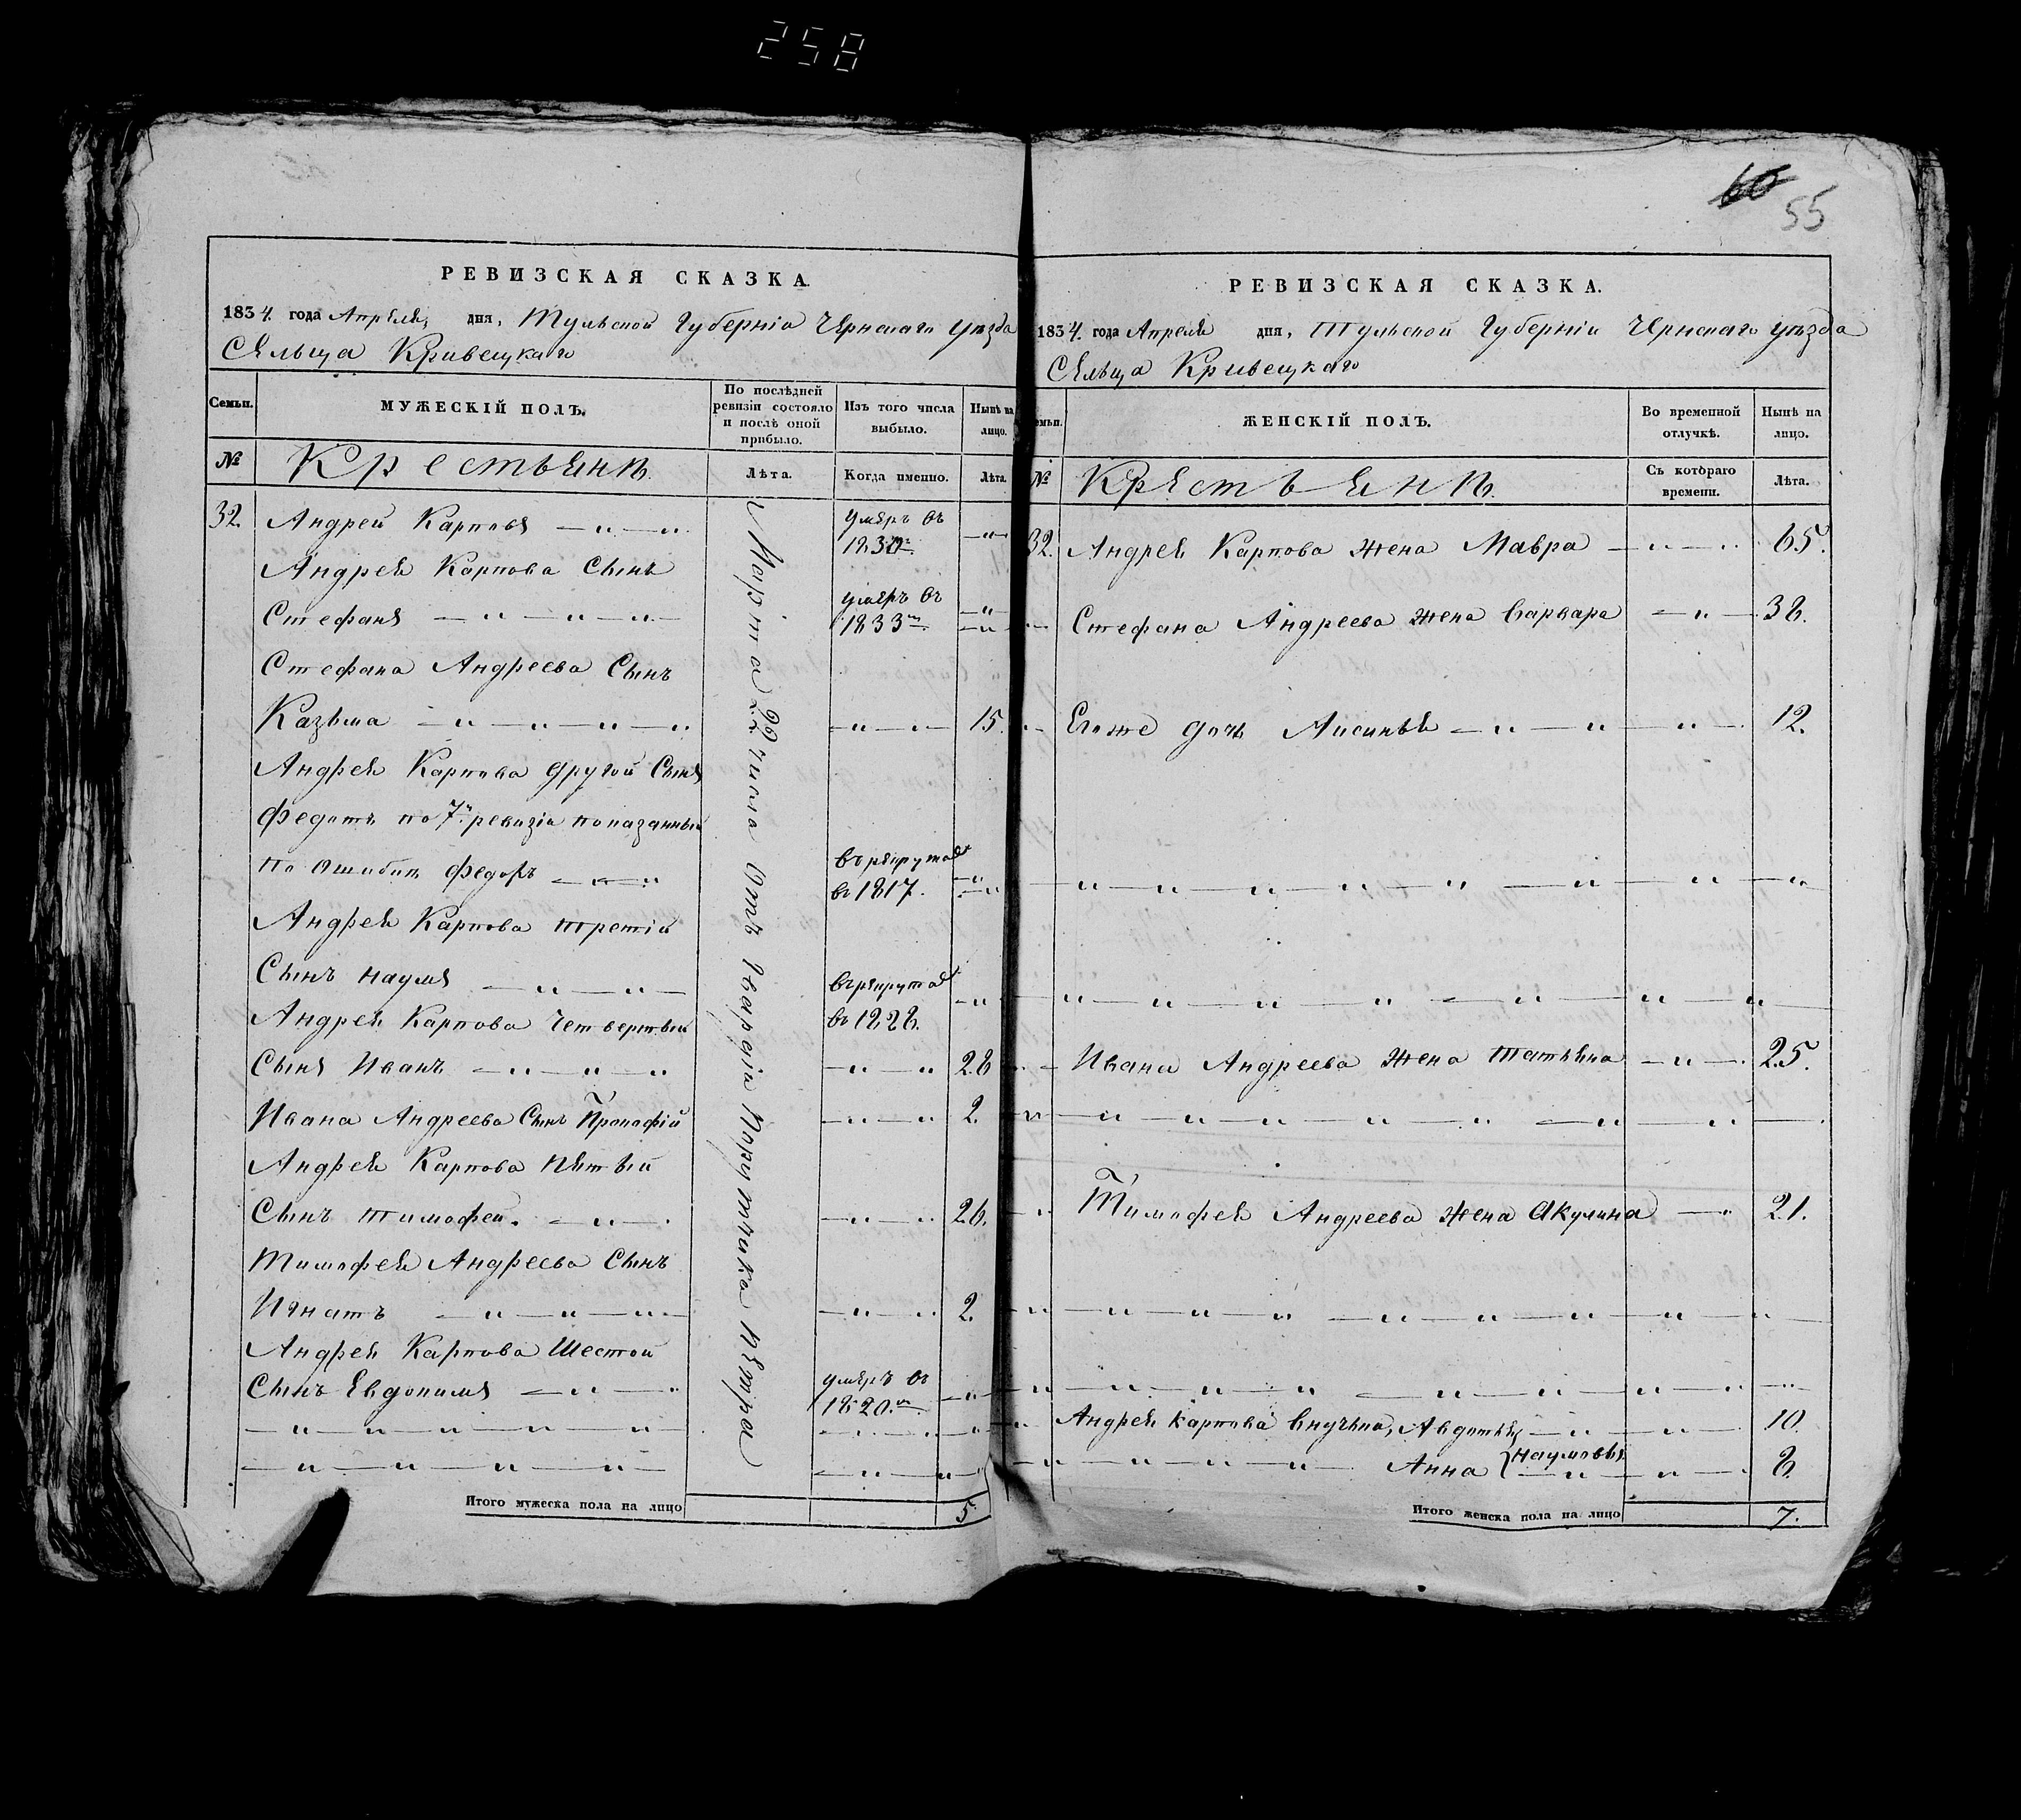 258
60
55
РЕВИЗСКАЯ СКАЗКА.
1834. года Апреля, дня, Тульской Губерніи Чернскаго уезда
Сельца Кривецкаго
Семьи.
МУЖЕСКІЙ ПОЛЪ.
По послѣдней ревизіи состояло и послѣ оной прибыло.
Изъ того числа выбыло.
Нынѣ на лицо.
№
Крестьянъ.
Лѣта.
Когда именно.
Лѣта.
32. Андрей Карповъ умеръ въ 1830м
Андрея Карпова Сынъ
Стефанъ умеръ въ 1833м
Стефана Андреева Сынъ
Казьма 15.
Андрея Карпова другой Сынъ
Федотъ по 7й ревизіи показанный
по ошибкѣ Федоръ
въ 1817.
Андрея Карпова третій
Сынъ Наумъ
въ 1828.
Андрея Карпова четвертый
Сынъ Иванъ 28
Ивана Андреева Сынъ Прокофій 2.
Андрея Карпова пятый
Сынъ Тимофей. 26.
Тимофея Андреева Сынъ
Игнатъ 2.
Андрея Карпова Шестой
Сынъ Евдокимъ умеръ въ 1820.м
Марта 22 числа отъ Гвардіи Порутчика Петра
Итого мужеска пола на лицо 5.
РЕВИЗСКАЯ СКАЗКА.
1834. года Апреля дня, Тульской Губерніи Чернскаго уезда
Сельца Кривецкаго
Семьи.
ЖЕНСКІЙ ПОЛЪ.
Во временной отлучкѣ.
Нынѣ на лицо.
№
Крестьянъ.
Съ котораго времени.
Лѣта.
32. Андрея Карпова жена Мавра 65.
Стефана Андреева жена Варвара 38.
Егоже дочь Аксинья 12.
Ивана Андреева жена Татьяна 25.
Тимофея Андреева жена Акулина 21.
Андрея Карпова Внучьки, Авдотья 10.
Анна Наумовы 8.
Итого женска пола на лицо 7.